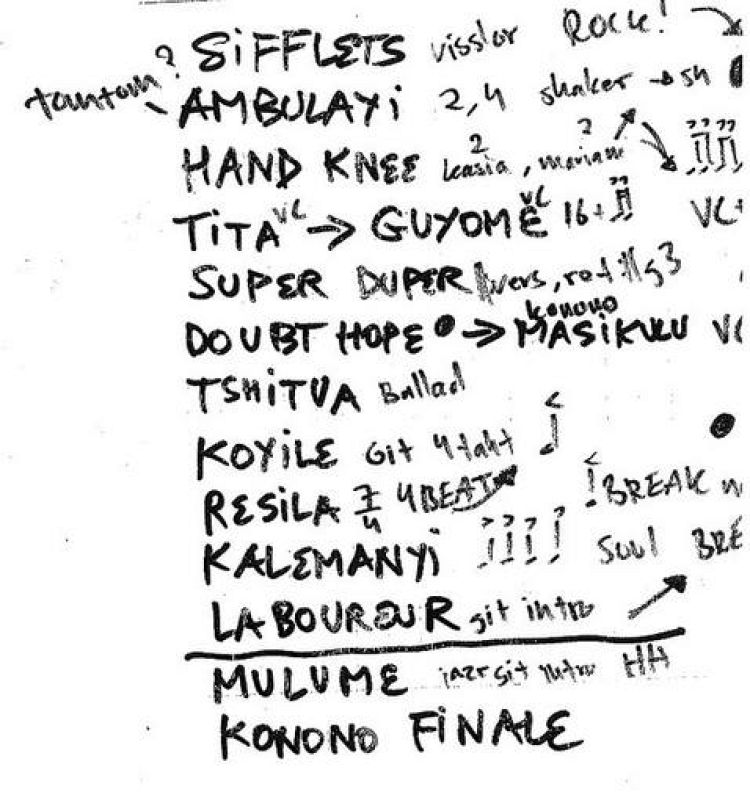 ? SiFFLETS visslor ROCK!
tamtam AMBULAYi 2,4 shaker → SH
HAND KNEE 2 kasia, mariam 2
TiTA VC → GUYOMÉ VC 16+ VC+
SUPER DUPER vers, ref
DOUBT HOPE → konono MASiKULU VC
TSHiTUA Ballad
KOYiLE Git 4takt
RESiLA 7/4 4BEAT ! BREAK
KALEMANYi Soul BRE
LABOUREUR git intro
MULUME jazz git intro HH
KONONO FiNALE